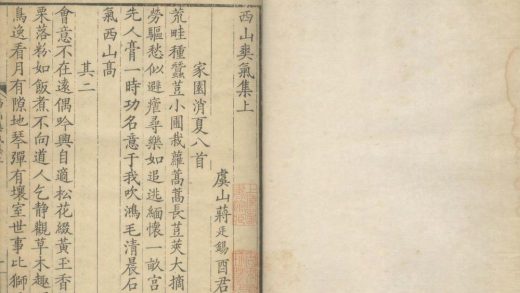 西山爽氣集上
虞山蔣廷錫酉君
家園消夏八首
荒畦種蠶荳小圃栽蘿蒿蒿長荳莢大摘
勞驅愁似避瘧尋樂如追逃緬懷一畝宮
先人膏一時功名意于我吹鴻毛清晨石
氣西山高
其二
會意不在遠偶吟興自適松花綴黃玉香
栗落粉如飯煮不向道人乞靜觀草木趣
鳥逸看月有隙地琴彈有壤室世事比獅